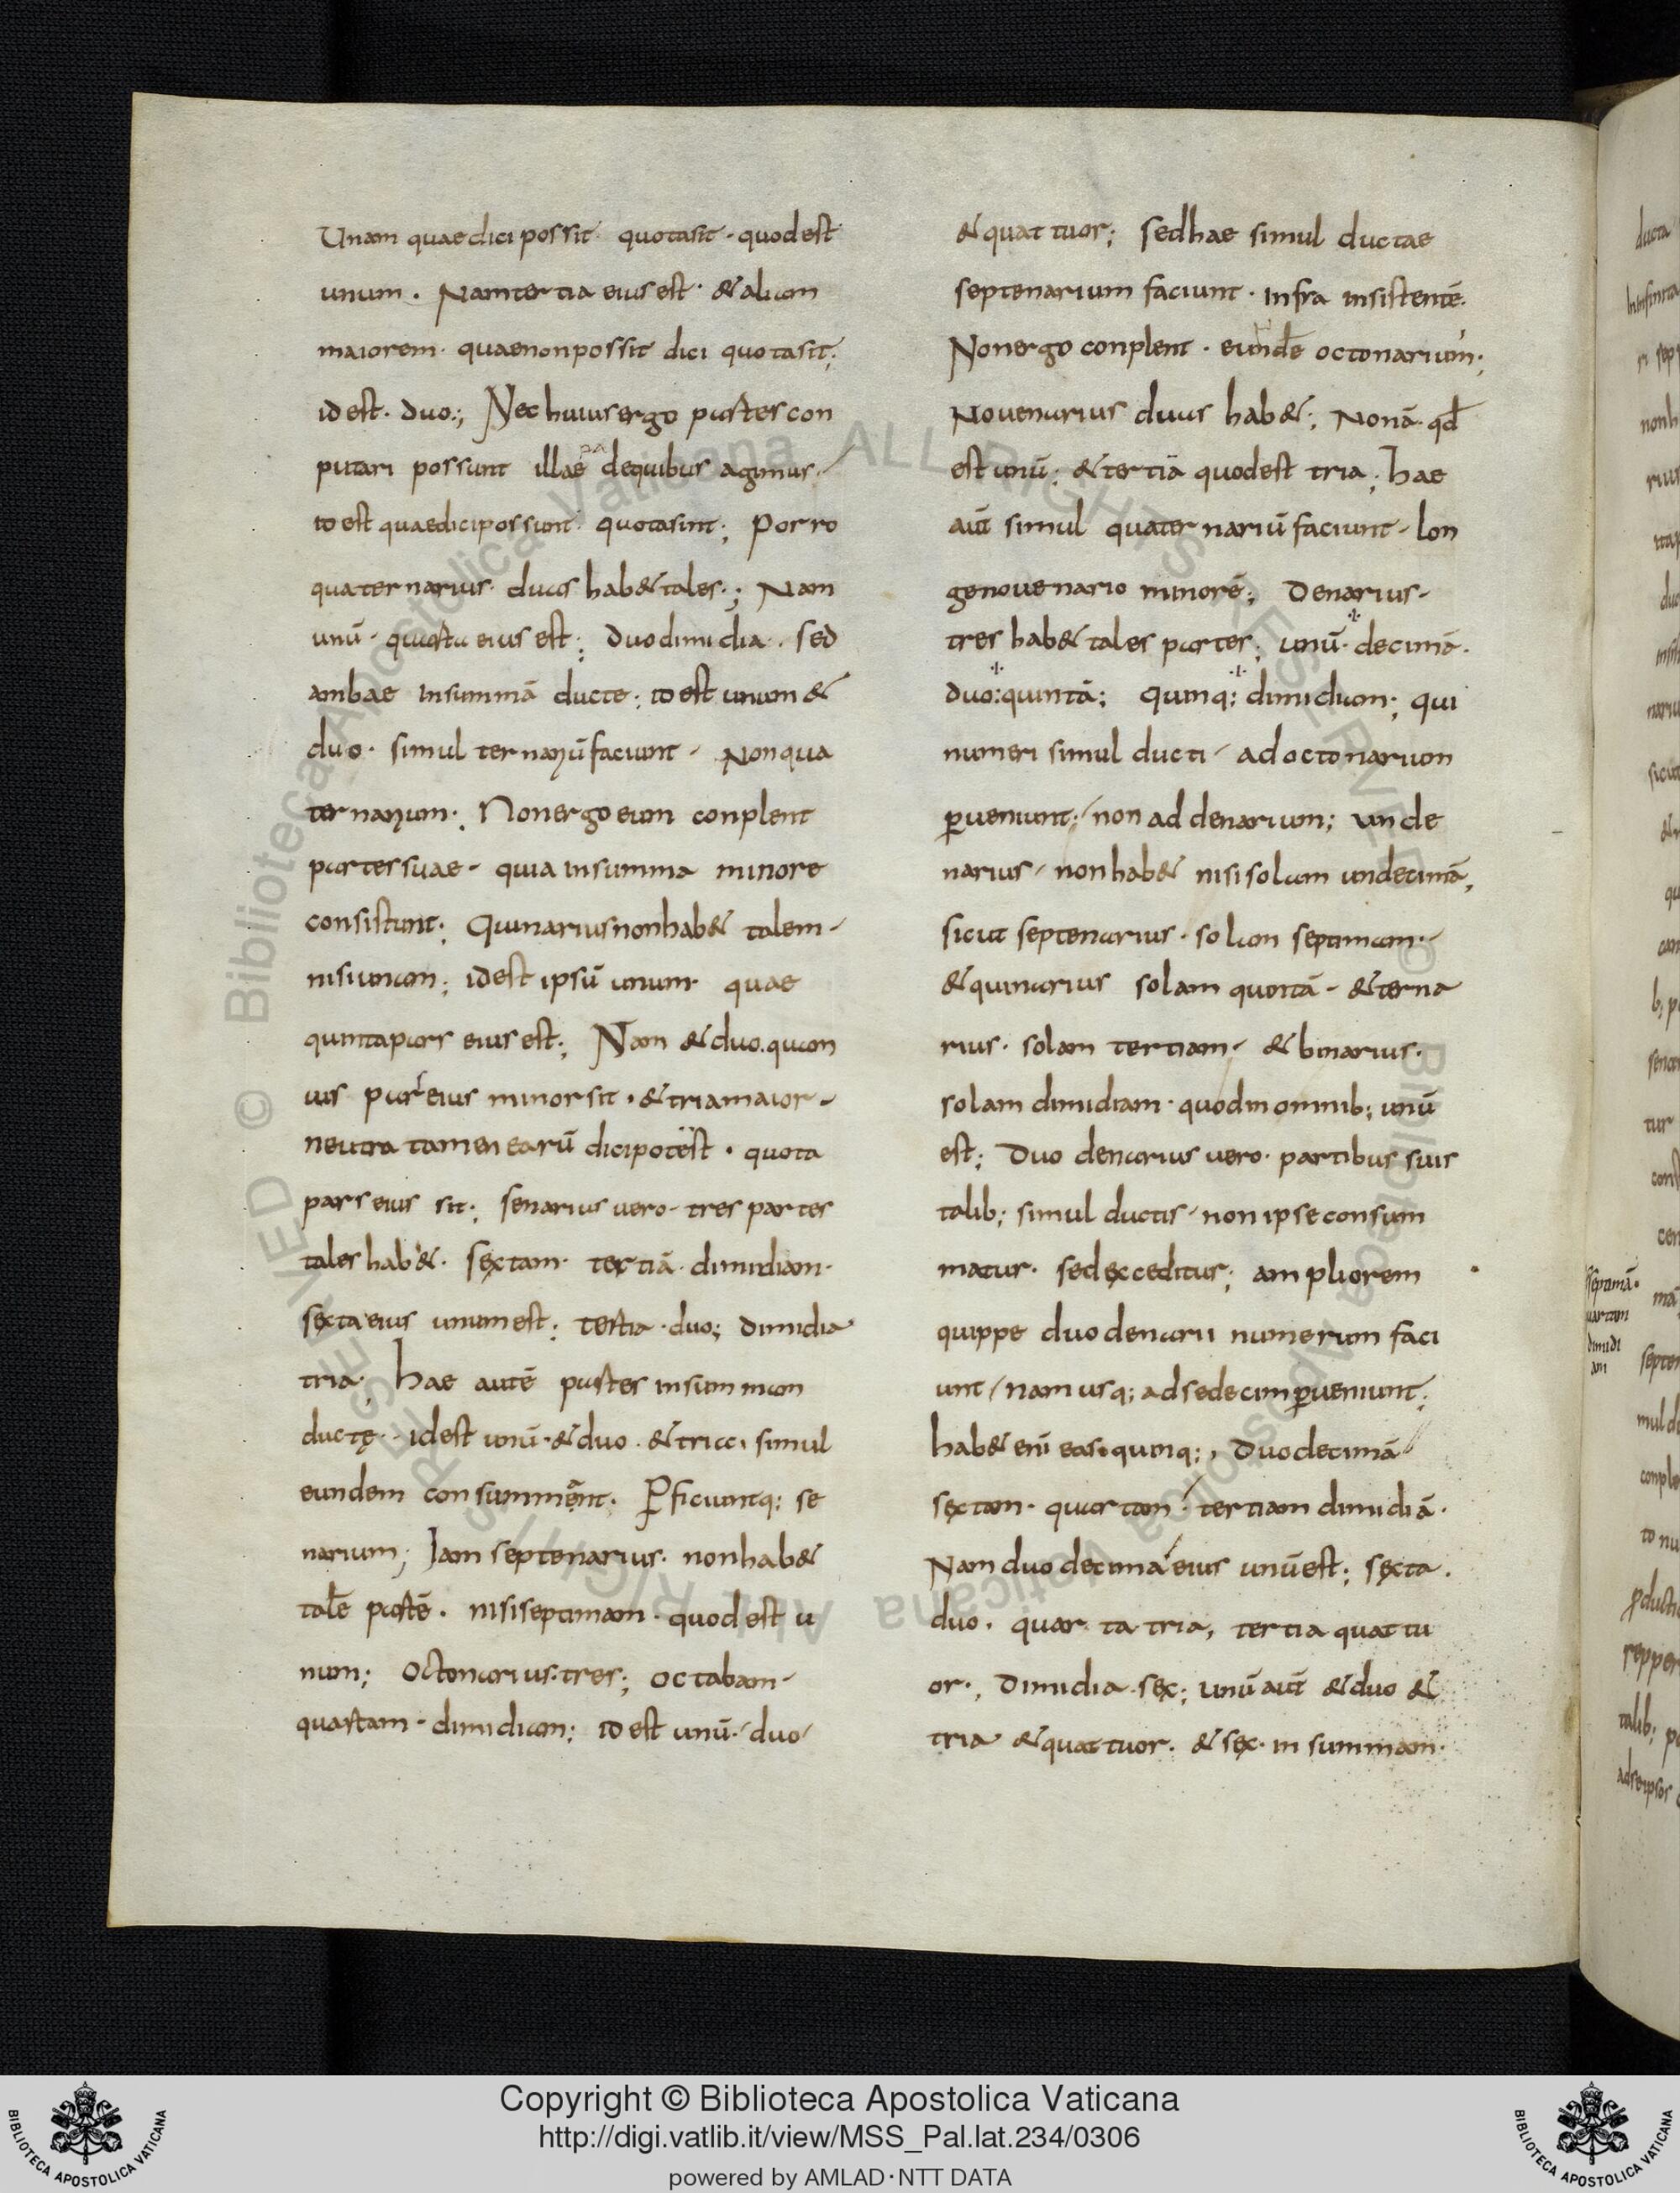 Unam quae dici possit quota sit · quod est
unum · Nam tertia eius est · & aliam
maiorem · quae non possit dici quota sit;
id est · duo·; Nec huius ergo partes con
putari possunt illae dequibus agimus ·
id est quae dici possunt quotasint; Porro
quaternarius · duas hab& tales·; Nam
unū · quarta eius est; duo dimidia · sed
ambae insummā ducte; id est unum &
duo · simul ternariū faciunt · Non qua
ternarium·; Non ergo eum conplent
partes suae · quia insumma minore
consistunt·; Quinarius non hab& talem ·
nisi unam; id est ipsū unum · quae
quinta pars eius est·; Nam & duo · quam
uis pars eius minor sit · & tria maior ·
neutra tamen earū dici potest · quota
pars eius sit·; senarius uero · tres partes
tales hab& · sęxtam · tertiā · dimidiam ·
sęxta eius unum est; tertia · duo; dimidia
tria·; hae autē partes insummam
ductę · id est unū · & duo · & tria · simul
eundem consummant · Ꝑficiuntq; se
narium; Iam septenarius · non hab&
talē partē · nisi septimam · quod est u
num; Octonarius · tres; octabam ·
quartam · dimidiam; id est unū · duo
& quattuor; sed hae simul ductae
septenarium faciunt · infra insistentē ·
Non ergo conplent · eundē octonarium·;
Nouenarius duas hab&; Nonā · qđ
est unū; & tertiā quod est tria; hae
aūt simul quaternariū faciunt · lon
ge nouenario minorē; Denarius ·
tres hab& tales partes; unū · decimā ·
duo: quintā; quinq; dimidiam; qui
numeri simul ducti · ad octonarium
ꝑueniunt; non ad denarium; unde
narius · non hab& nisi solam undecimā;
sicut septenarius · solam septimam ·
& quinarius solam quintā · & terna
rius · solam tertiam · & binarius ·
solam dimidiam · quod in omnib; unū
est; Duodenarius uero · partibus suis
talib; simul ductis · non ipse consum
matur · sed excęditur; ampliorem
quippe duodenarii numerum faci
unt · nam usq; ad sedecim ꝑueniunt;
hab& enī eas · quinq; · duodecimā
sęxtam · quartam · tertiam dimidiā ·
Nam duodecima eius unū est; sęxta ·
duo · quarta tria, tertia quattu
or·, dimidia · sęx; unū aūt & duo &
tria & quattuor · & sęx · in summam ·
Copyright © Biblioteca Apostolica Vaticana
http://digi.vatlib.it/view/MSS_Pal.lat.234/0306
powered by AMLAD·NTT DATA
BIBLIOTECA APOSTOLICA VATICANA
BIBLIOTECA APOSTOLICA VATICANA